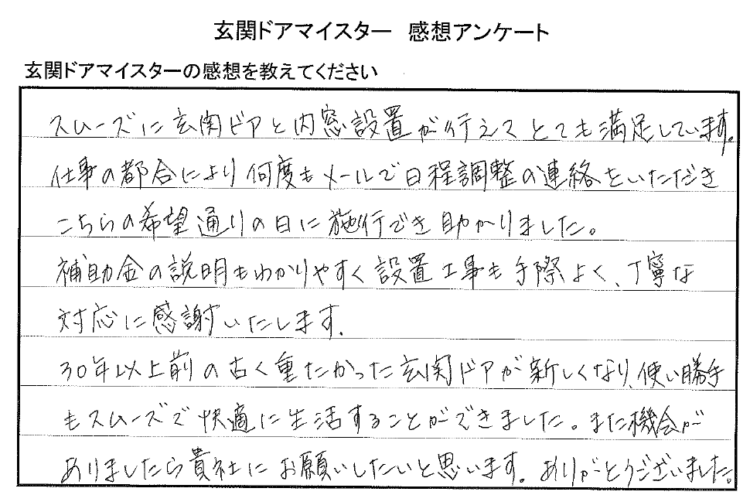 玄関ドアマイスター　感想アンケート
玄関ドアマイスターの感想を教えてください
スムーズに玄関ドアと内窓設置が行えてとても満足しています。
仕事の都合により何度もメールで日程調整の連絡をいただき
こちらの希望通りの日に施行でき助かりました。
補助金の説明もわかりやすく設置工事も手際よく、丁寧な
対応に感謝いたします。
30年以上前の古く重たかった玄関ドアが新しくなり、使い勝手
もスムーズで快適に生活することができました。また機会が
ありましたら貴社にお願いしたいと思います。ありがとうございました。